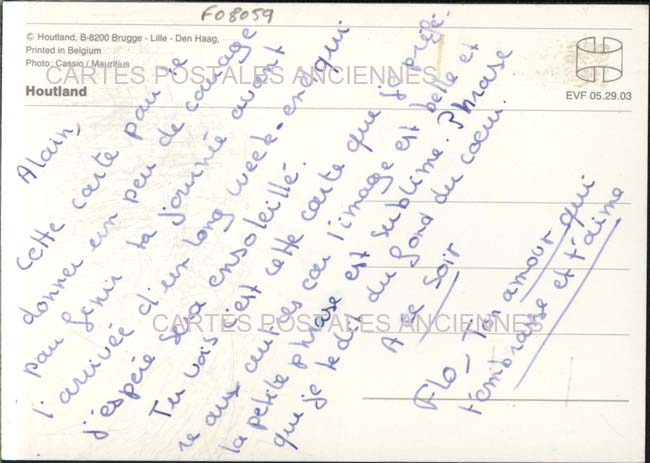 F08059
© Houtland, B-8200 Brugge - Lille - Den Haag.
Printed in Belgium
Photo: Cassio / Mauritius
Houtland
EVF 05.29.03
CARTES POSTALES ANCIENNES
CARTES POSTALES ANCIENNES
Alain,
Cette carte pour te
donner un peu de courage
pour finir ta journée avant
l'arrivée d'un long week-end qui
j'espère sera ensoleillé.
Tu vois c'est cette carte que je préfé-
re aux autres car l'image est belle et
la petite phrase est sublime. Phrase
que je te dit du fond du coeur.
A ce soir
Flo - Ton amour qui
t'embrasse et t'aime